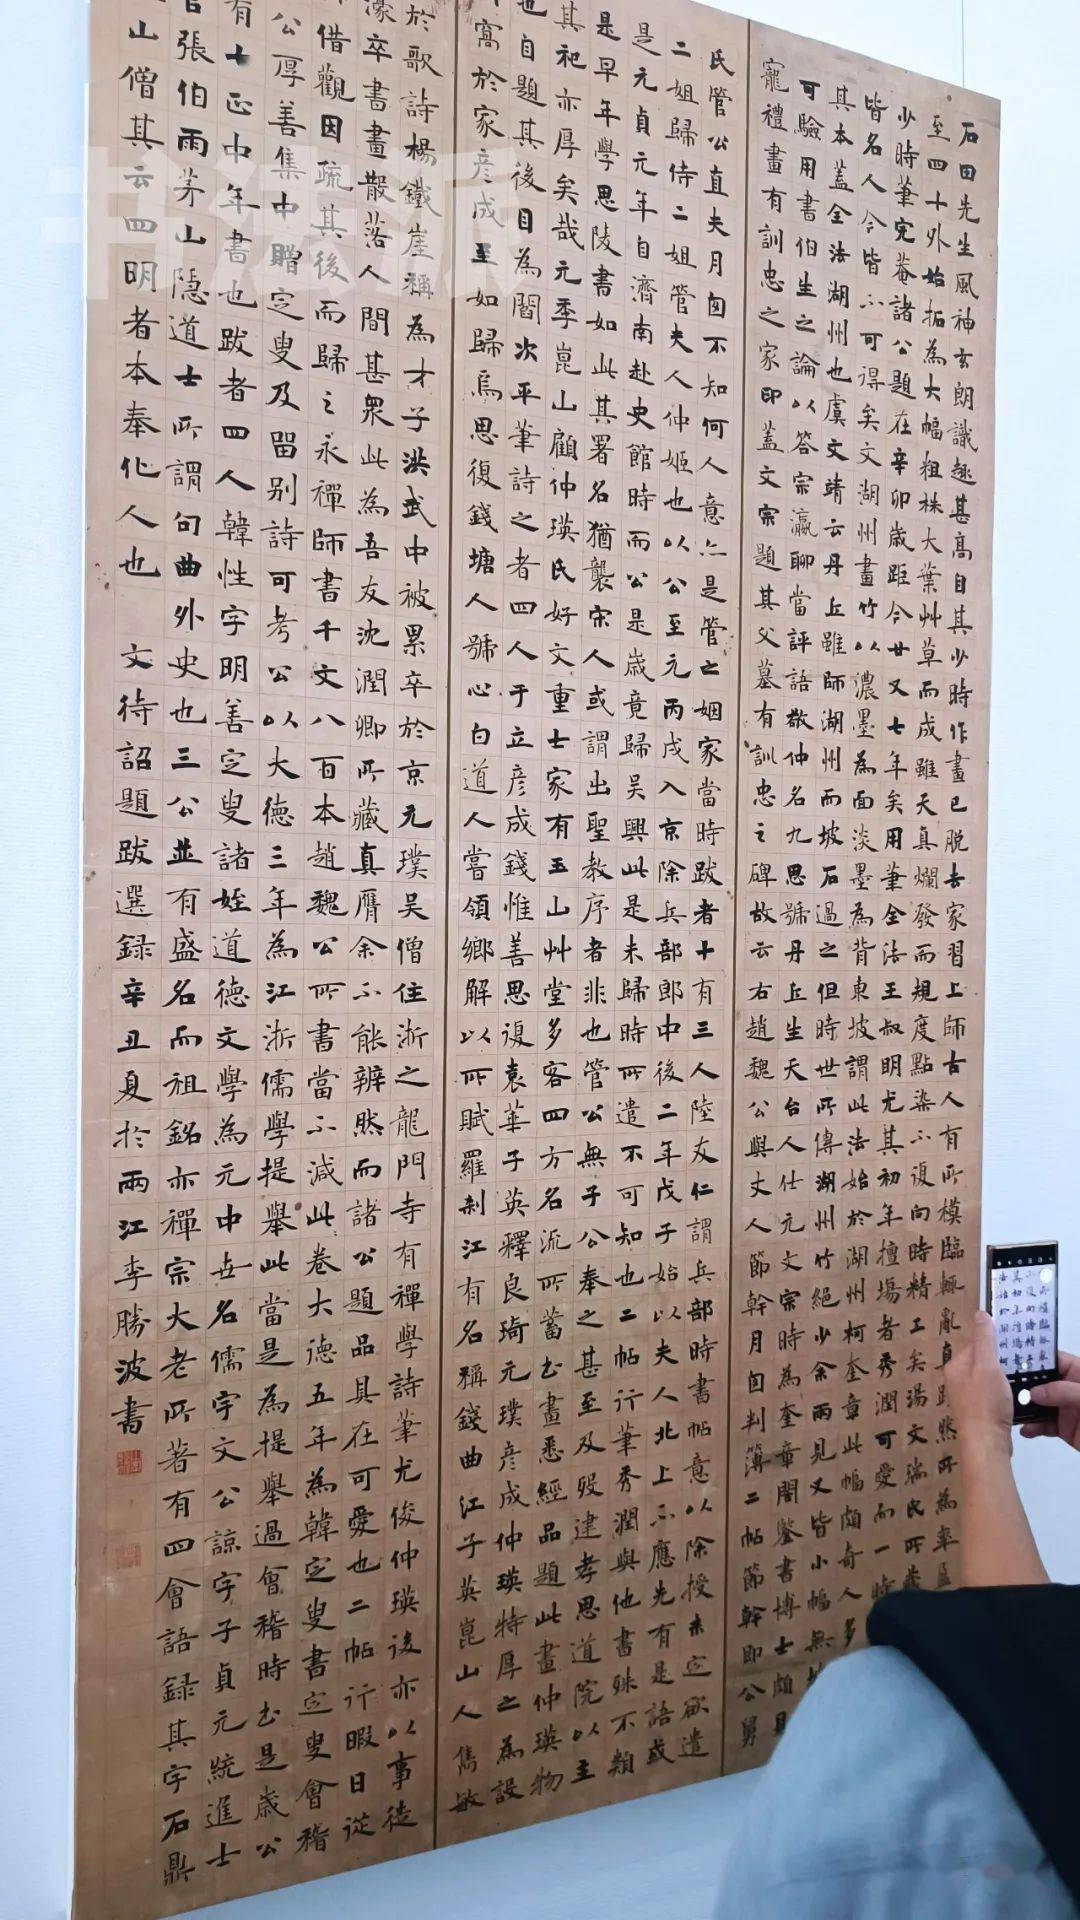 石田先生風神玄朗識趣甚高自其少時作畫已脫去家習上師古人有所模臨輒亂真跡然所為率盈
至四十外始拓為大幅粗株大葉艸草而成雖天真爛發而規度點染不復向時精工矣湯文瑞氏所藏
少時筆完菴諸公題在辛卯歲距今廿又七年矣用筆全法王叔明尤其初年擅場者秀潤可愛而一時
皆名人今皆不可得矣文湖州畫竹以濃墨為面淡墨為背東坡謂此法始於湖州柯奎章此幅頗奇人多
其本蓋全法湖州也虞文靖云丹丘雖師湖州而坡石過之但時世所傳湖州竹絕少余兩見又皆小幅無坡
可驗用書伯生之論以答宗瀛聊當評語敬仲名九思號丹丘生天台人仕元文宗時為奎章閣鑒書博士頗見
寵禮畫有訓忠之家印蓋文宗題其父墓有訓忠之碑故云右趙魏公與丈人節幹月囱判簿二帖節幹即公舅
氏管公直夫月囱不知何人意亦是管之姻家當時跋者十有三人陸友仁謂兵部時書帖意以除授未定欲遣
二姐歸侍二姐管夫人仲姬也以公至元丙戌入京除兵部郎中後二年戊子始以夫人北上不應先有是語或
是元貞元年自濟南赴史館時而公是歲竟歸吳興此是未歸時所遣不可知也二帖行筆秀潤與他書殊不類
是早年學思陵書如此其署名猶襲宋人或謂出聖教序者非也管公無子公奉之甚至及歿建孝思道院以主
其祀亦厚矣哉元季崑山顧仲瑛氏好文重士家有玉山艸堂多客四方名流所蓄書畫悉經品題此畫仲瑛物
也自題其後目為閻次平筆詩之者四人于立彥成錢惟善思復袁華子英釋良琦元璞彥成仲瑛特厚之為設
窩於家彥成至如歸焉思復錢塘人號心白道人嘗領鄉解以所賦羅刹江有名稱錢曲江子英崑山人雋敏
於歌詩楊鐵崖稱為才子洪武中被累卒於京元璞吳僧住浙之龍門寺有禪學詩筆尤俊仲瑛後亦以事徙
濠卒書畫散落人間甚眾此為吾友沈潤卿所藏真贗余不能辨然而諸公題品具在可愛也二帖行暇日從
借觀因疏其後而歸之永禪師書千文八百本趙魏公所書當不減此卷大德五年為韓定叟書定叟會稽
公厚善集中贈定叟及留別詩可考公以大德三年為江浙儒學提舉此當是為提舉過會稽時書是歲公
有十正中年書也跋者四人韓性字明善定叟諸姪道德文學為元中世名儒宇文公諒字子貞元統進士
官張伯雨茅山隱道士所謂句曲外史也三公並有盛名而祖銘亦禪宗大老所著有四會語錄其字石鼎
山僧其云四明者本奉化人也 文待詔題跋選錄辛丑夏於兩江李勝波書
书法派